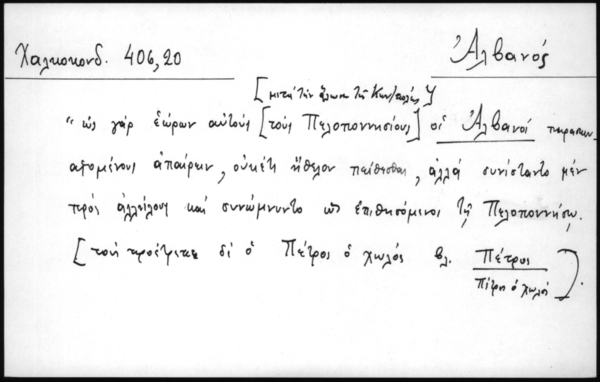 Χαλκοκονδ. 406,20
Ἀλβανός
[μετὰ τὴν ἅλωσι τῆς Κων/πόλεως]
"ὡς γὰρ ἑώρων αὐτούς [τοὺς Πελοποννησίους] οἱ Ἀλβανοί παρασκευ-
αζομένους ἀπαίρειν, οὐκέτι ἤθελον πείθεσθαι, ἀλλά συνίσταντο μέν
πρός ἀλλήλους καί συνώμνυντο ὡς ἐπιθησόμενοι τῇ Πελοποννήσῳ.
[τούς προέτρεπε δέ ὁ Πέτρος ὁ χωλός βλ. Πέτρος
Πέτρος ὁ χωλός].